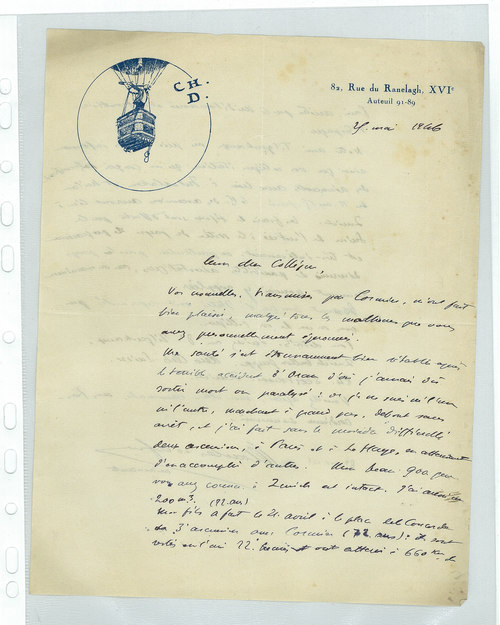 CH.
D.
82, Rue du Ranelagh, XVIe
Auteuil 91-89
mai 1946
Mon cher Collègue,
Vos nouvelles, transmises par Cormier, m'ont fait
bien plaisir, malgré tous les malheurs que vous
avez personnellement éprouvés.
Ma santé s'est étonnamment bien rétablie après
le terrible accident d'Oran d'où j'aurais dû
sortir mort ou paralysé : or je ne suis ni l'un
ni l'autre, marchant à grand pas, debout sans
arrêt, et j'ai fait sans la moindre difficulté
deux ascensions, à Paris et à La Haye, en attendant
d'en accomplir d'autres. Mon beau 900 que
vous avez connu à Zurich est intact. J'ai
200 m3. (22 ans)
Mon fils a fait le 21 avril à la place de la Concorde
sa 3e ascension avec Cormier (72 ans) : ils sont
restés en l'air 22 heures et ont atterri à 660 Km de